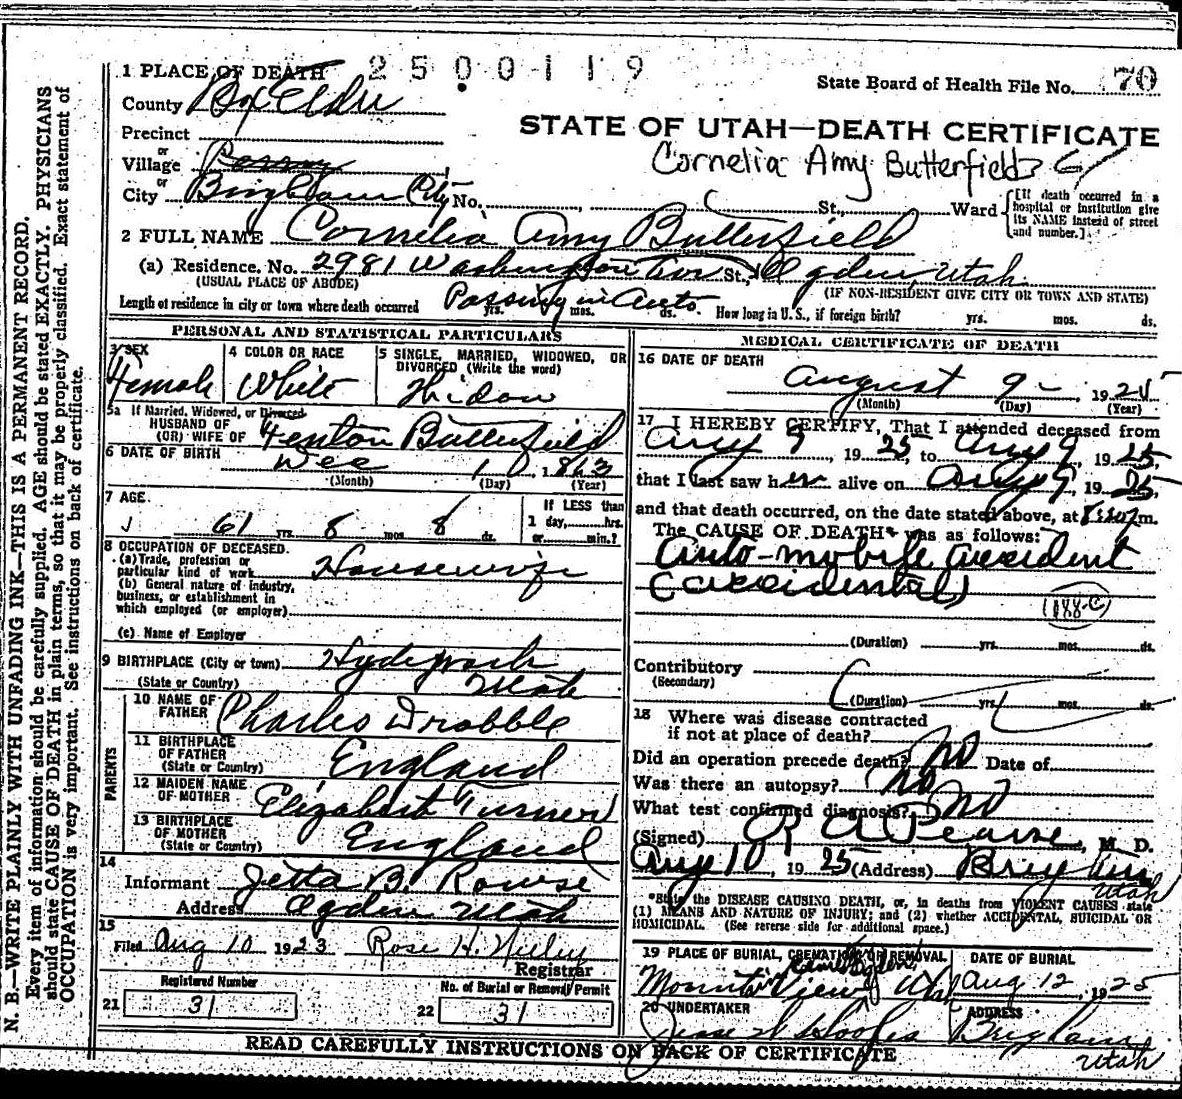 N. B.—WRITE PLAINLY WITH UNFADING INK—THIS IS A PERMANENT RECORD.
Every item of information should be carefully supplied. AGE should be stated EXACTLY. PHYSICIANS
should state CAUSE OF DEATH in plain terms, so that it may be properly classified. Exact statement of
OCCUPATION is very important. See instructions on back of certificate.
1 PLACE OF DEATH 2500119
State Board of Health File No. 70
County Box Elder
STATE OF UTAH—DEATH CERTIFICATE
Precinct
Cornelia Amy Butterfield
or
Village
or
City Brigham City No. St., Ward
[If death occurred in a
hospital or institution give
its NAME instead of street
and number.]
2 FULL NAME Cornelia Amy Butterfield
(a) Residence. No. 2981 Washington Ave St., Ogden, Utah
(USUAL PLACE OF ABODE) (IF NON-RESIDENT GIVE CITY OR TOWN AND STATE)
Length of residence in city or town where death occurred Passing in Auto yrs. mos. ds. How long in U. S., if foreign birth? yrs. mos. ds.
PERSONAL AND STATISTICAL PARTICULARS
3 SEX Female
4 COLOR OR RACE White
5 SINGLE, MARRIED, WIDOWED, OR
DIVORCED (Write the word)
Widow
5a If Married, Widowed, or Divorced
HUSBAND OF
(OR) WIFE OF Fenton Butterfield
6 DATE OF BIRTH Dec 1 1863
(Month) (Day) (Year)
7 AGE. 61 yrs. 8 mos. 8 ds.
If LESS than
1 day, hrs.
or min.?
8 OCCUPATION OF DECEASED.
(a) Trade, profession or
particular kind of work Housewife
(b) General nature of industry,
business, or establishment in
which employed (or employer)
(c) Name of Employer
9 BIRTHPLACE (City or town) Hydepark
(State or Country) Utah
PARENTS
10 NAME OF
FATHER Charles Drabble
11 BIRTHPLACE
OF FATHER
(State or Country) England
12 MAIDEN NAME
OF MOTHER Elizabeth Turner
13 BIRTHPLACE
OF MOTHER
(State or Country) England
14
Informant Jetta B. Rowse
Address Ogden Utah
15
Filed Aug 10 1923 Rose H.
Registrar
Registered Number
21 31
No. of Burial or Removal Permit
22 31
MEDICAL CERTIFICATE OF DEATH
16 DATE OF DEATH
August 9 - 1925
(Month) (Day) (Year)
17 I HEREBY CERTIFY, That I attended deceased from
Aug 9, 1925, to Aug 9, 1925,
that I last saw her alive on Aug 9, 1925,
and that death occurred, on the date stated above, at m.
The CAUSE OF DEATH* was as follows:
Auto-mobile accident
(accidental)
188-C
(Duration) yrs. mos. ds.
Contributory
(Secondary)
(Duration) yrs. mos. ds.
18 Where was disease contracted
if not at place of death?
Did an operation precede death? No Date of
Was there an autopsy? No
What test confirmed diagnosis? No
(Signed) R A Pearse, M. D.
Aug 10, 1925 (Address) Brigham
Utah
*State the DISEASE CAUSING DEATH, or, in deaths from VIOLENT CAUSES state
(1) MEANS AND NATURE OF INJURY; and (2) whether ACCIDENTAL, SUICIDAL OR
HOMICIDAL. (See reverse side for additional space.)
19 PLACE OF BURIAL, CREMATION OR REMOVAL
Mountain View
DATE OF BURIAL
Aug 12, 1925
20 UNDERTAKER
ADDRESS
Brigham
Utah
READ CAREFULLY INSTRUCTIONS ON BACK OF CERTIFICATE